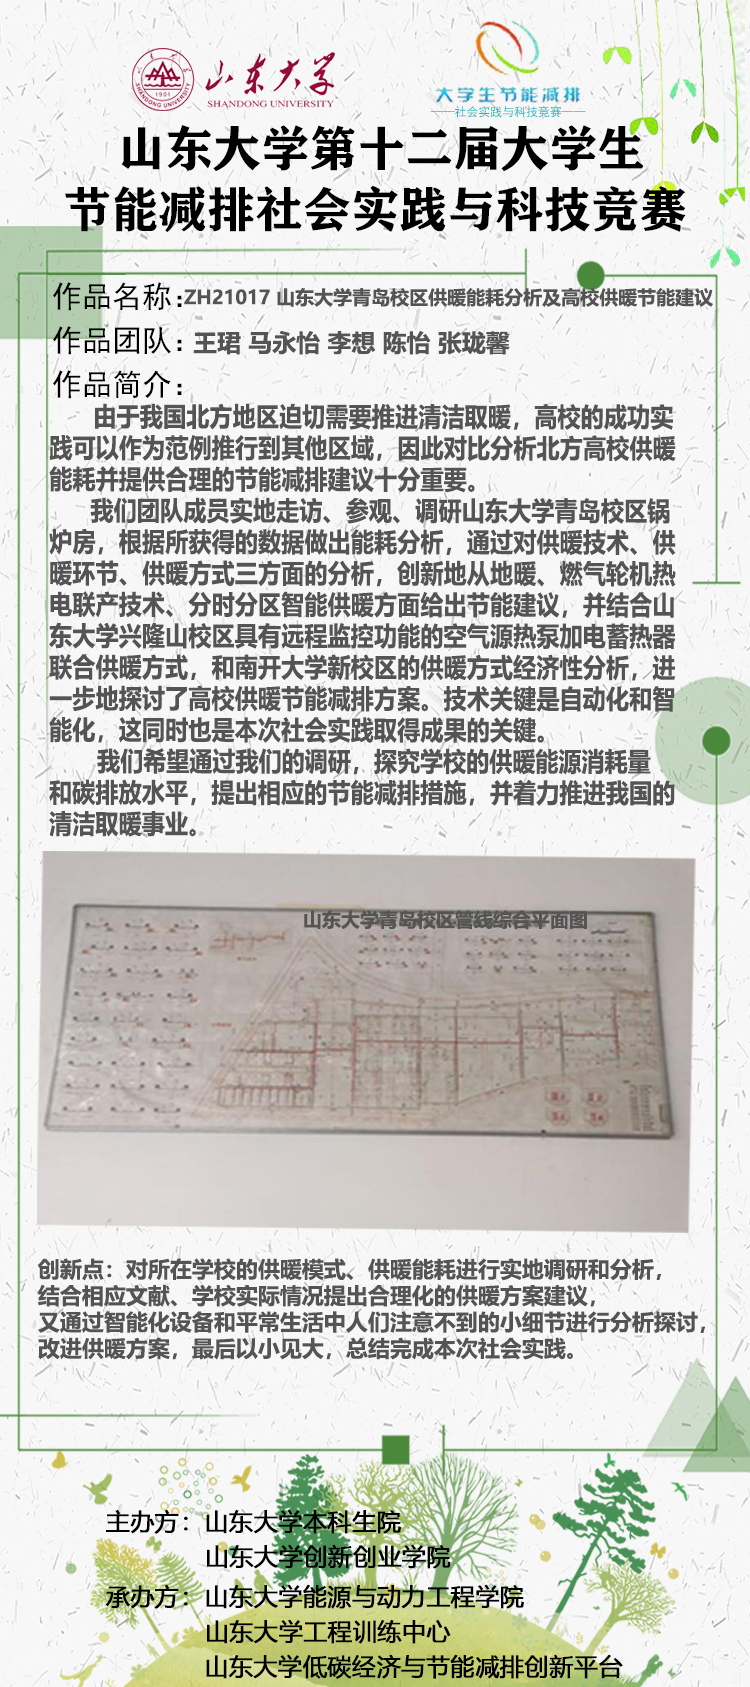 山东大学
SHANDONG UNIVERSITY
1901
SHANDONG UNIVERSITY
大学生节能减排
社会实践与科技竞赛
山东大学第十二届大学生
节能减排社会实践与科技竞赛
作品名称：ZH21017 山东大学青岛校区供暖能耗分析及高校供暖节能建议
作品团队：王珺 马永怡 李想 陈怡 张珑馨
作品简介：
由于我国北方地区迫切需要推进清洁取暖，高校的成功实
践可以作为范例推行到其他区域，因此对比分析北方高校供暖
能耗并提供合理的节能减排建议十分重要。
我们团队成员实地走访、参观、调研山东大学青岛校区锅
炉房，根据所获得的数据做出能耗分析，通过对供暖技术、供
暖环节、供暖方式三方面的分析，创新地从地暖、燃气轮机热
电联产技术、分时分区智能供暖方面给出节能建议，并结合山
东大学兴隆山校区具有远程监控功能的空气源热泵加电蓄热器
联合供暖方式，和南开大学新校区的供暖方式经济性分析，进
一步地探讨了高校供暖节能减排方案。技术关键是自动化和智
能化，这同时也是本次社会实践取得成果的关键。
我们希望通过我们的调研，探究学校的供暖能源消耗量
和碳排放水平，提出相应的节能减排措施，并着力推进我国的
清洁取暖事业。
山东大学青岛校区管线综合平面图
创新点：对所在学校的供暖模式、供暖能耗进行实地调研和分析，
结合相应文献、学校实际情况提出合理化的供暖方案建议，
又通过智能化设备和平常生活中人们注意不到的小细节进行分析探讨，
改进供暖方案，最后以小见大，总结完成本次社会实践。
主办方：山东大学本科生院
山东大学创新创业学院
承办方：山东大学能源与动力工程学院
山东大学工程训练中心
山东大学低碳经济与节能减排创新平台